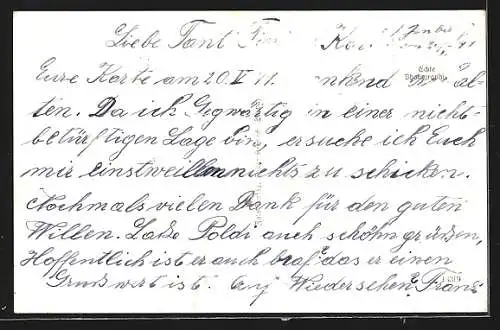 Liebe Tant
Eure Karte am 20. V 41. enkend al-
ten. Da ich Gegwärtig in einer nicht-
betürftigen Lage bin, ersuche ich Euch
mir einstweillen nichts zu schicken.
Nochmals vielen Dank für den guten
Willen. Laße Poldi auch schöhn grüßen,
Hoffentlich ist er auch braf das er einen
Gruß wert ist. Auf Wiedersehen Franz
Echte
Photographie